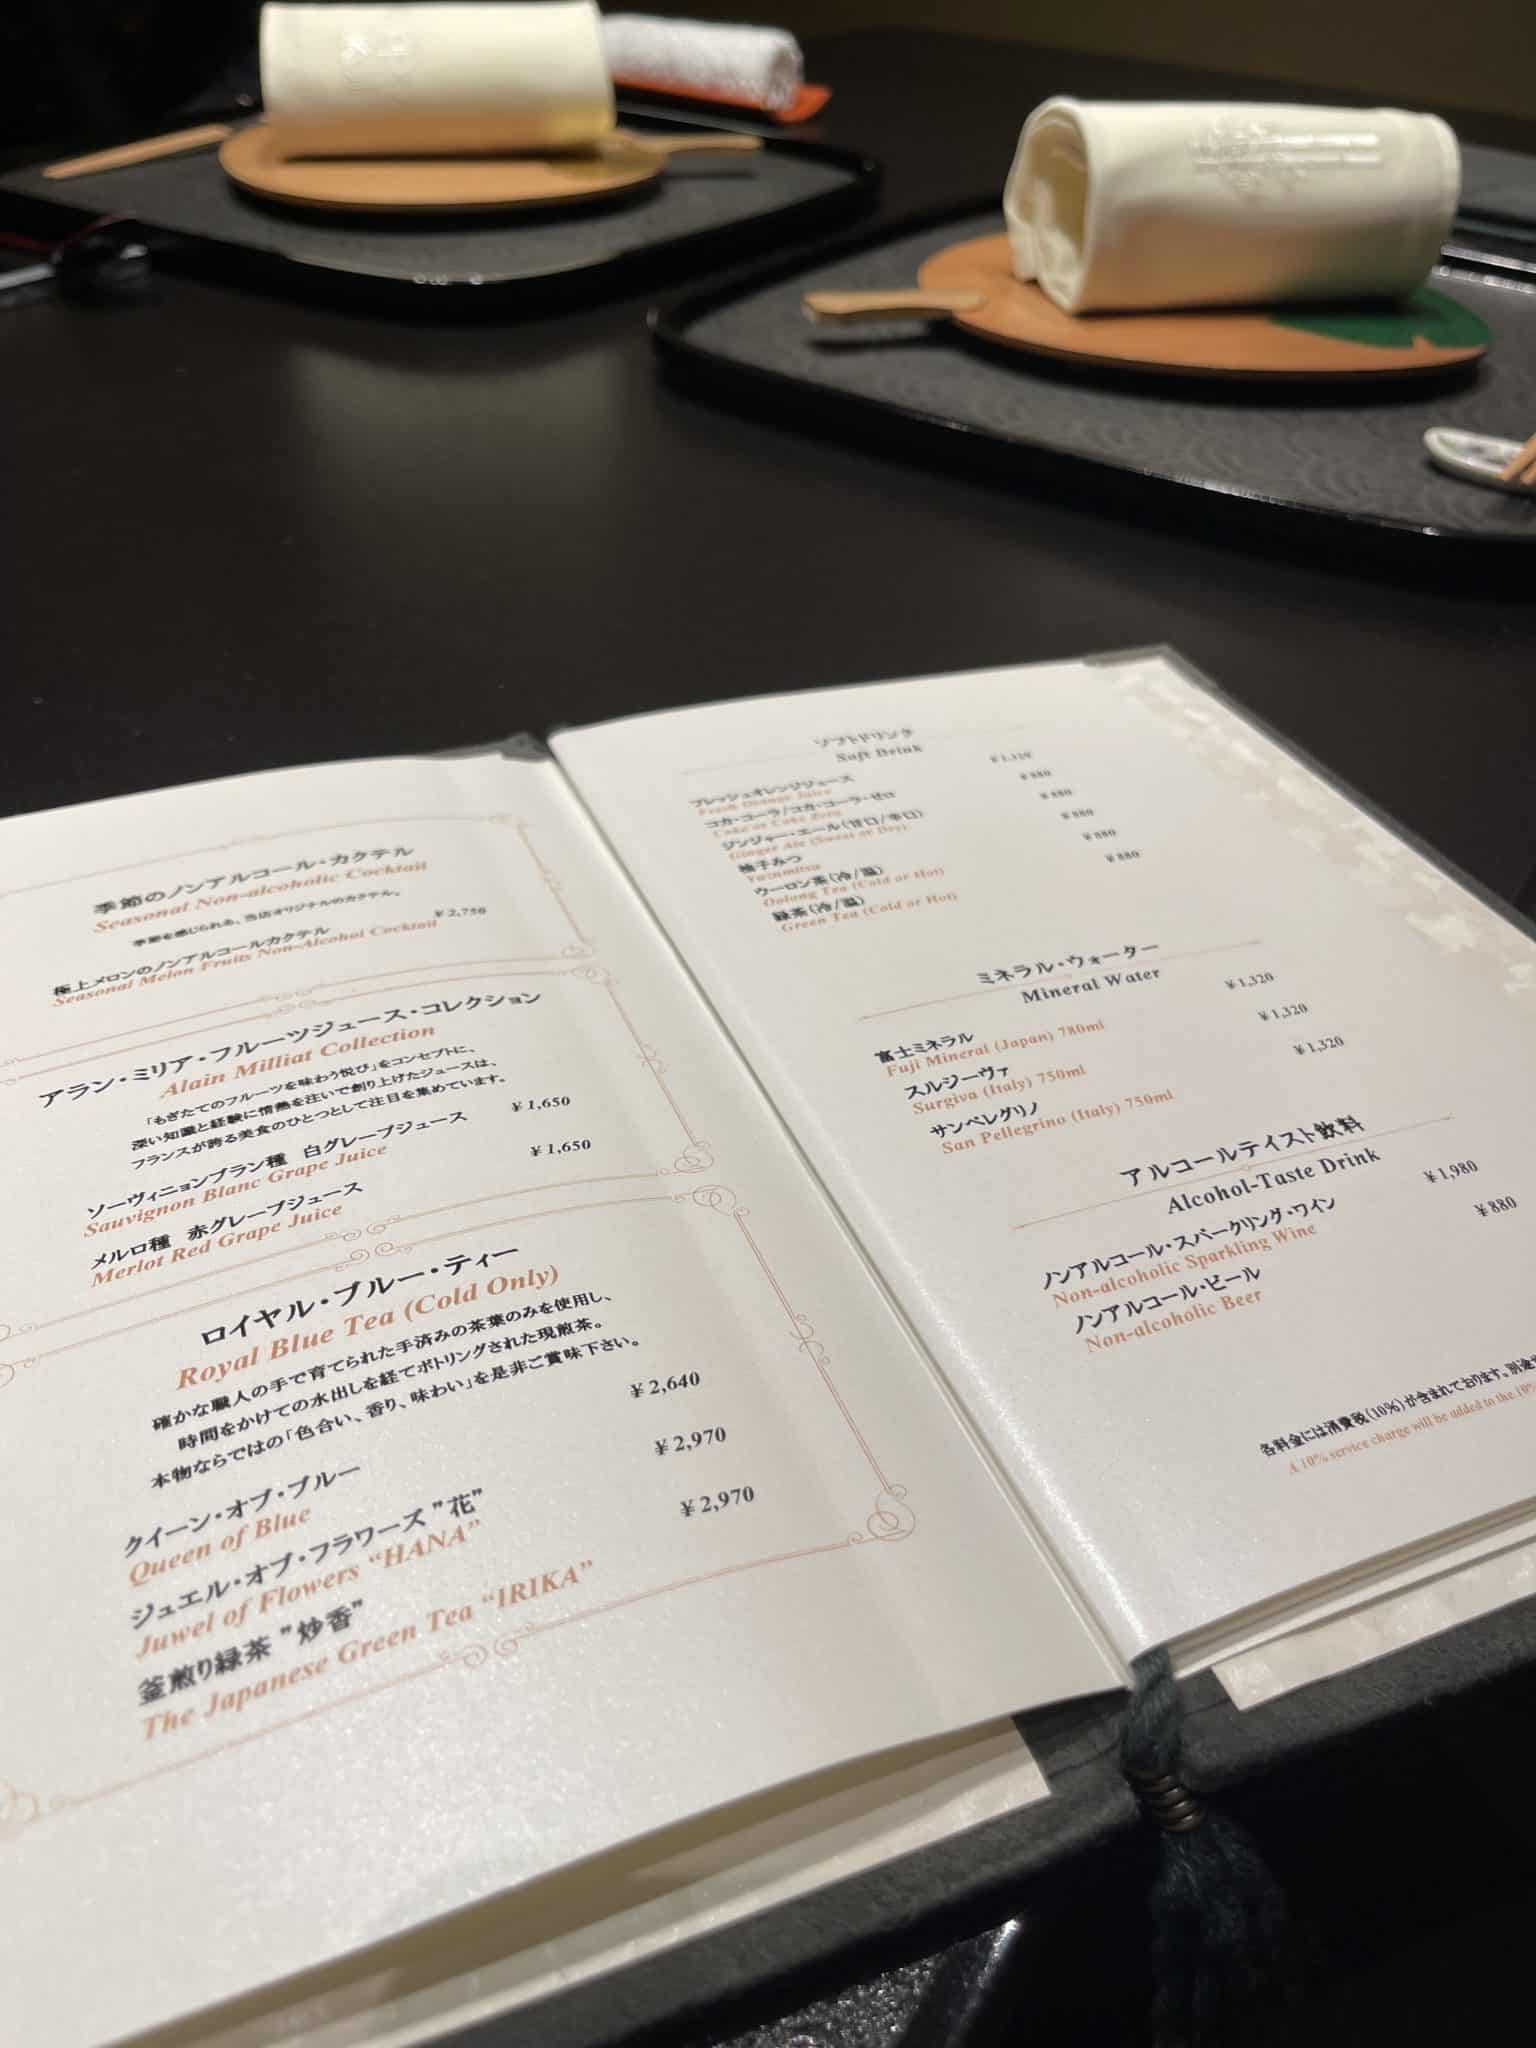 季節のノンアルコール・カクテル
Seasonal Non-alcoholic Cocktail
季節を感じられる、当店オリジナルのカクテル。
極上メロンのノンアルコールカクテル ¥2,750
Seasonal Melon Fruits Non-Alcohol Cocktail
アラン・ミリア・フルーツジュース・コレクション
Alain Milliat Collection
「もぎたてのフルーツを味わう悦び」をコンセプトに、
深い知識と経験に情熱を注いで創り上げたジュースは、
フランスが誇る美食のひとつとして注目を集めています。
ソーヴィニョンブラン種 白グレープジュース ¥1,650
Sauvignon Blanc Grape Juice
メルロ種 赤グレープジュース ¥1,650
Merlot Red Grape Juice
ロイヤル・ブルー・ティー
Royal Blue Tea (Cold Only)
確かな職人の手で育てられた手済みの茶葉のみを使用し、
時間をかけての水出しを経てボトリングされた現煎茶。
本物ならではの「色合い、香り、味わい」を是非ご賞味下さい。
クイーン・オブ・ブルー ¥2,640
Queen of Blue
ジュエル・オブ・フラワーズ "花" ¥2,970
Juwel of Flowers “HANA”
釜煎り緑茶 "炒香" ¥2,970
The Japanese Green Tea “IRIKA”
ソフトドリンク
Soft Drink
フレッシュオレンジジュース ¥1,320
Fresh Orange Juice
コカ・コーラ/コカ・コーラ・ゼロ ¥880
Coke or Coke Zero
ジンジャー・エール(甘口/辛口) ¥880
Ginger Ale (Sweet or Dry)
柚子みつ ¥880
Yuzumitsu
ウーロン茶(冷/温) ¥880
Oolong Tea (Cold or Hot)
緑茶(冷/温) ¥880
Green Tea (Cold or Hot)
ミネラル・ウォーター
Mineral Water
富士ミネラル ¥1,320
Fuji Mineral (Japan) 780ml
スルジーヴァ ¥1,320
Surgiva (Italy) 750ml
サンペレグリノ ¥1,320
San Pellegrino (Italy) 750ml
アルコールテイスト飲料
Alcohol-Taste Drink
ノンアルコール・スパークリング・ワイン ¥1,980
Non-alcoholic Sparkling Wine
ノンアルコール・ビール ¥880
Non-alcoholic Beer
各料金には消費税(10%)が含まれております。別途
A 10% service charge will be added to the 10%